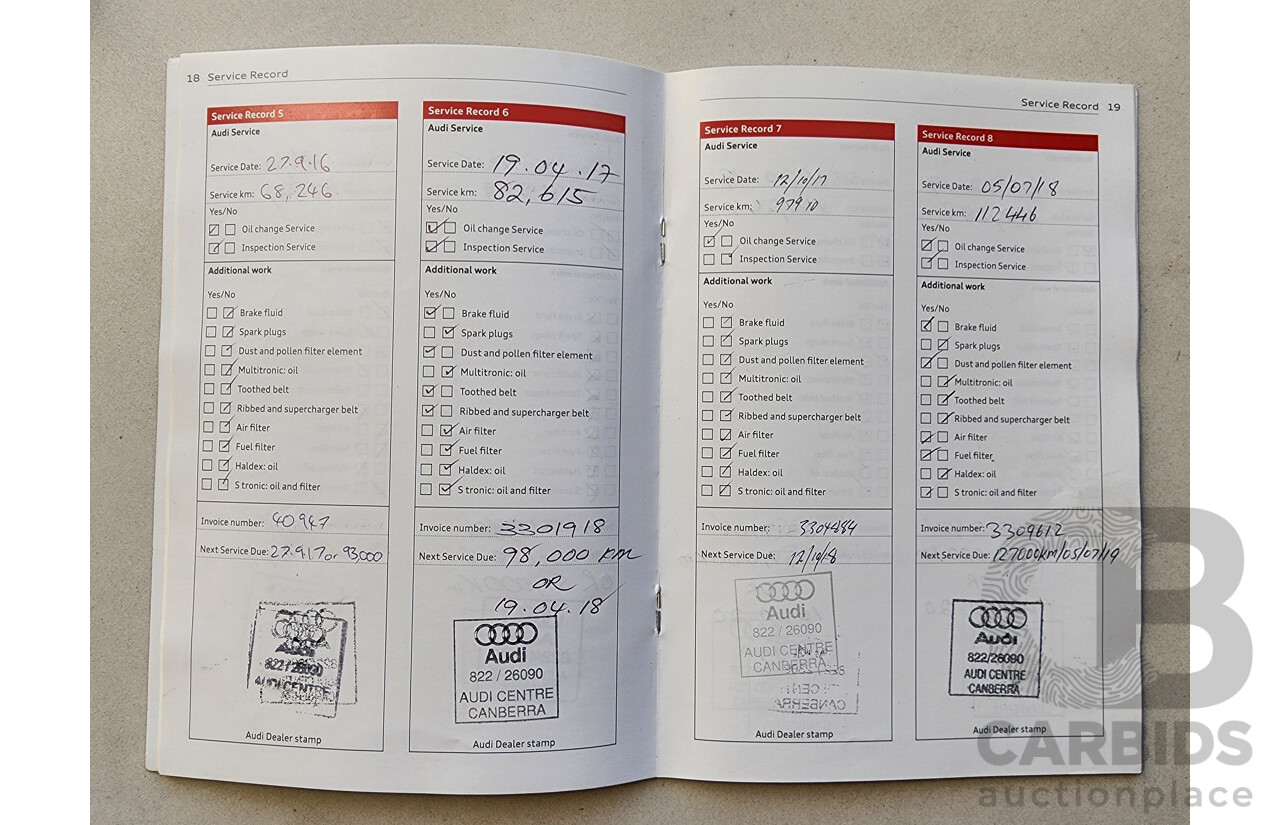 18 Service Record
Service Record 5
Audi Service
Service Date: 27.9.16
Service km: 68,246
Yes/No
Oil change Service
Inspection Service
Additional work
Yes/No
Brake fluid
Spark plugs
Dust and pollen filter element
Multitronic: oil
Toothed belt
Ribbed and supercharger belt
Air filter
Fuel filter
Haldex: oil
S tronic: oil and filter
Invoice number: 40947
Next Service Due: 27.9.17 or 93,000
Audi
822/26090
AUDI CENTRE
Audi Dealer stamp
Service Record 6
Audi Service
Service Date: 19.04.17
Service km: 82,615
Yes/No
Oil change Service
Inspection Service
Additional work
Yes/No
Brake fluid
Spark plugs
Dust and pollen filter element
Multitronic: oil
Toothed belt
Ribbed and supercharger belt
Air filter
Fuel filter
Haldex: oil
S tronic: oil and filter
Invoice number: 3301918
Next Service Due: 98,000 KM
OR
19.04.18
Audi
822 / 26090
AUDI CENTRE
CANBERRA
Audi Dealer stamp
Service Record 19
Service Record 7
Audi Service
Service Date: 12/10/17
Service km: 97910
Yes/No
Oil change Service
Inspection Service
Additional work
Yes/No
Brake fluid
Spark plugs
Dust and pollen filter element
Multitronic: oil
Toothed belt
Ribbed and supercharger belt
Air filter
Fuel filter
Haldex: oil
S tronic: oil and filter
Invoice number:
Next Service Due: 12/10/18
Audi
822 / 26090
AUDI CENTRE
CANBERRA
Audi Dealer stamp
Service Record 8
Audi Service
Service Date: 05/07/18
Service km: 112446
Yes/No
Oil change Service
Inspection Service
Additional work
Yes/No
Brake fluid
Spark plugs
Dust and pollen filter element
Multitronic: oil
Toothed belt
Ribbed and supercharger belt
Air filter
Fuel filter
Haldex: oil
S tronic: oil and filter
Invoice number: 3309612
Next Service Due: 127000km/05/07/19
Audi
822/26090
AUDI CENTRE
CANBERRA
Audi Dealer stamp
B
CARBIDS
auctionplace